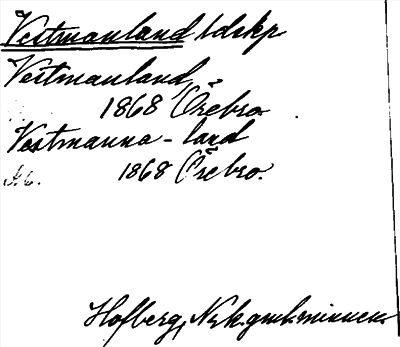 Vestmanland ldskp
Vestmanland,
1868 Örebro.
Vestmanna-land
1868 Örebro.
Hofberg, Nerk. gmla minnen